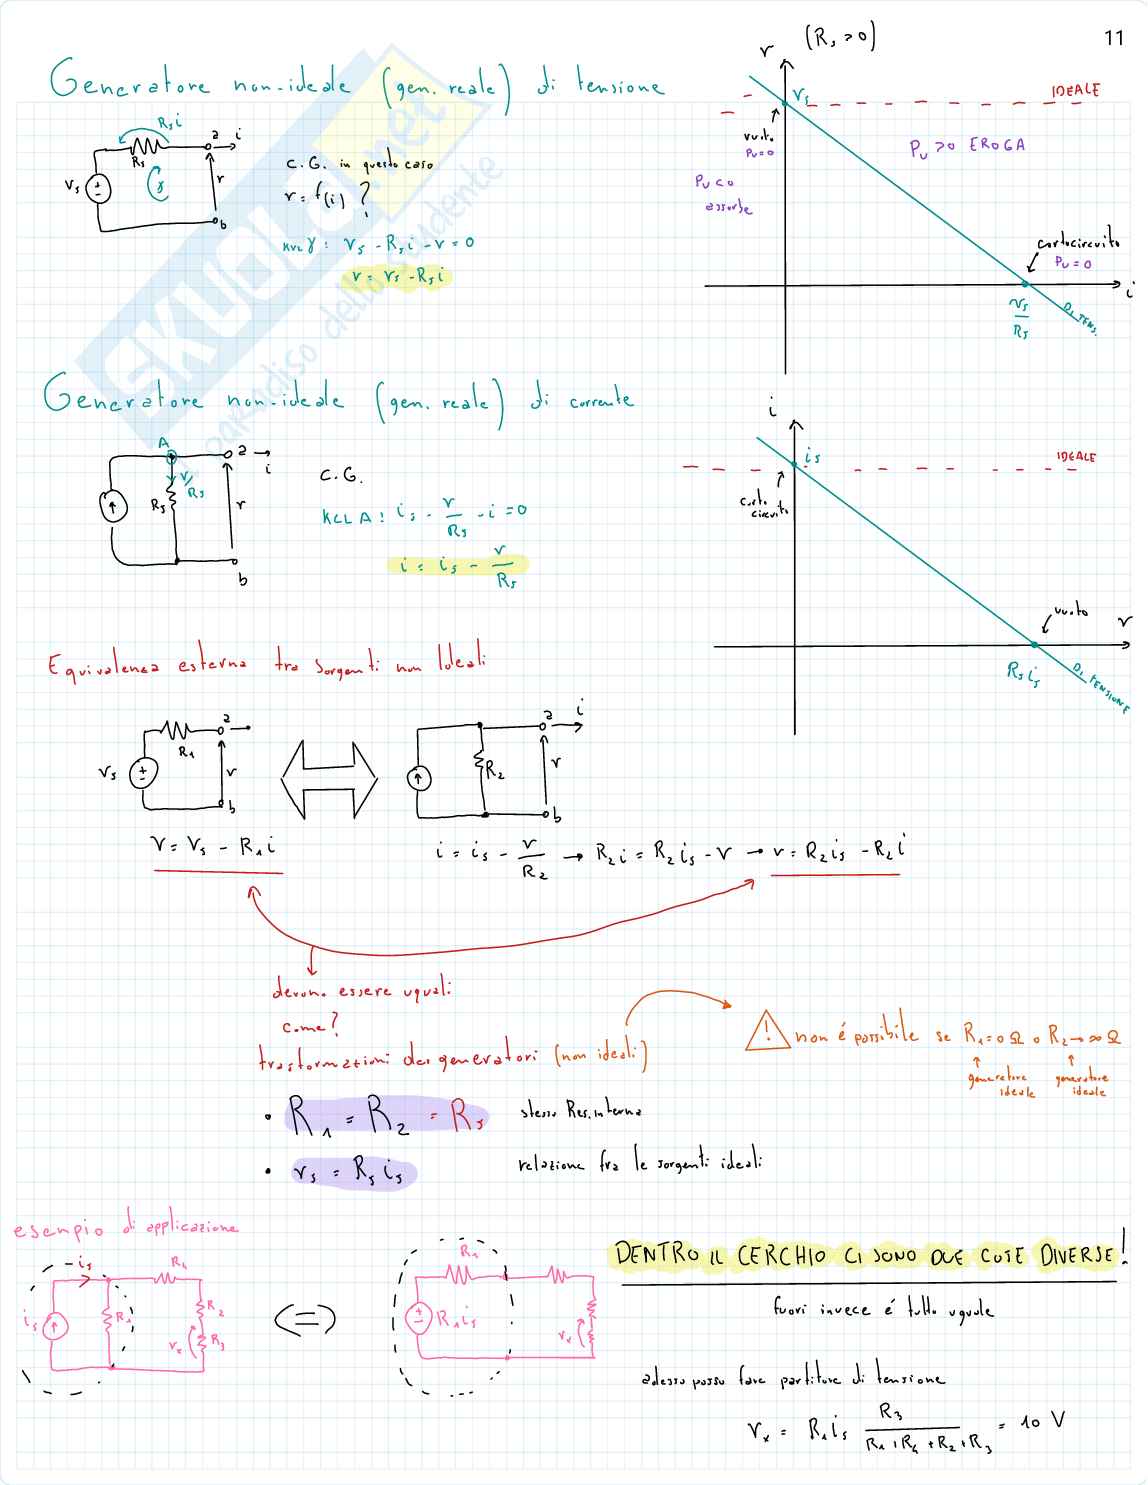 11
Generatore non-ideale (gen. reale) di tensione
(Rs > 0)
Rs i
a i
Rs
Vs
γ
v
b
C.G. in questo caso
v = f(i) ?
KVL γ: vs - Rs i - v = 0
v = vs - Rs i
v
vs
IDEALE
vuoto
Pu = 0
Pu > 0 EROGA
Pu < 0
assorbe
cortocircuito
Pu = 0
i
vs
Rs
DI TENS.
Generatore non-ideale (gen. reale) di corrente
A
a
i
v/Rs
Rs
v
b
C.G.
KCL A: is - v/Rs - i = 0
i = is - v/Rs
i
is
IDEALE
corto
circuito
vuoto
v
Rs is
DI TENSIONE
Equivalenza esterna tra sorgenti non Ideali
a
R1
vs
v
b
a i
R2
v
b
v = vs - R1 i
i = is - v/R2 → R2 i = R2 is - v → v = R2 is - R2 i
devono essere uguali
come?
trasformazioni dei generatori (non ideali)
! non é possibile se R1 = 0 Ω o R2 → ∞ Ω
generatore ideale
generatore ideale
• R1 = R2 = Rs stessa Res. interna
• vs = Rs is relazione fra le sorgenti ideali
esempio di applicazione
-is
R4
is
R1
R2
vx
R3
<=>
R1
R1 is
vx
DENTRO IL CERCHIO CI SONO DUE COSE DIVERSE!
fuori invece é tutto uguale
adesso posso fare partitore di tensione
vx = R1 is R3/(R1 + R4 + R2 + R3) = 10 V
SKUOLA.net
il paradiso dello studente